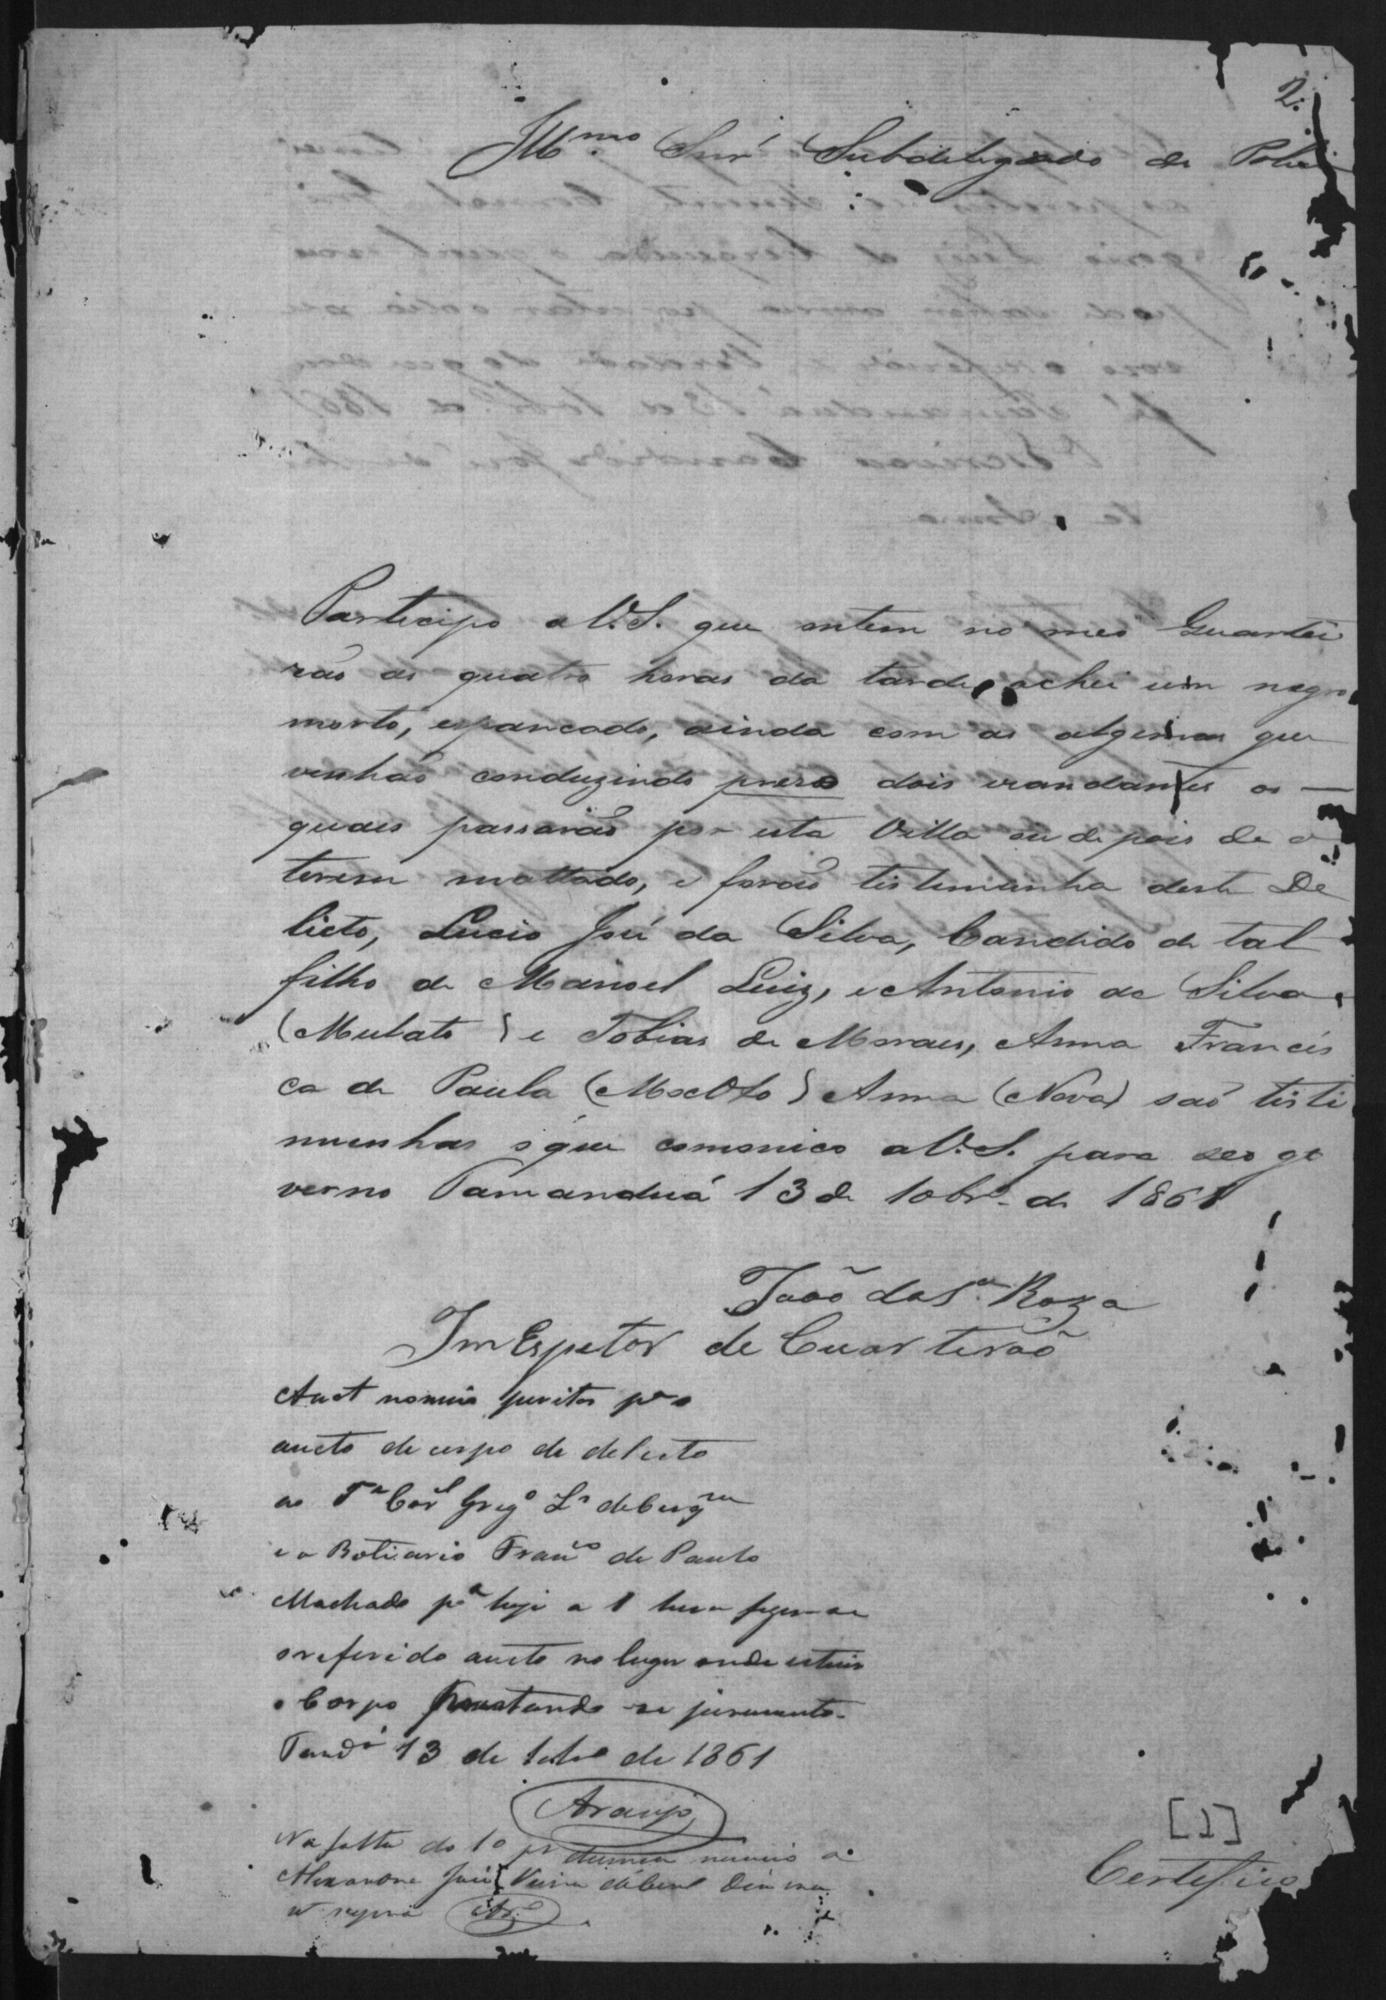 2.
Illmo Snr Subdelegado de Policia
Participo a V.S. que ontem no meo Quartei
rão as quatro horas da tarde, achei um negro
morto, espancado, ainda com as algemas que
vinhão conduzindo prezo dois viandantes os
quais passarão por esta Villa eu depois de o
terem mattado, e forão testimunha deste De
licto, Lucio José da Silva, Candido de tal
filho de Manoel Luiz, e Antonio da Silva
(Mulato) e Tobias de Moraes, Anna Francis
ca de Paula Anna (Nova) são testi
munhas o que comonico a V.S. para seo go
verno Tamanduá 13 de 10brº de 1861
João da Sª Roza
Inrespetor de Cuarteirão
Auct nomeio peritos pª o
aucto de corpo de delicto
ao Te Corel Gregº Lz de
e o Boticario Franco de Paula
Machado pª hoje a 1 hora fazer-se
o referido aucto no lugar onde estiver
o Corpo prestando-se juramento.
Tamdá 13 de 10brº de 1861
Araujo
Na falta do 1º nomeio a
Alexandre José Vieira
Arº
[1]
Certifico